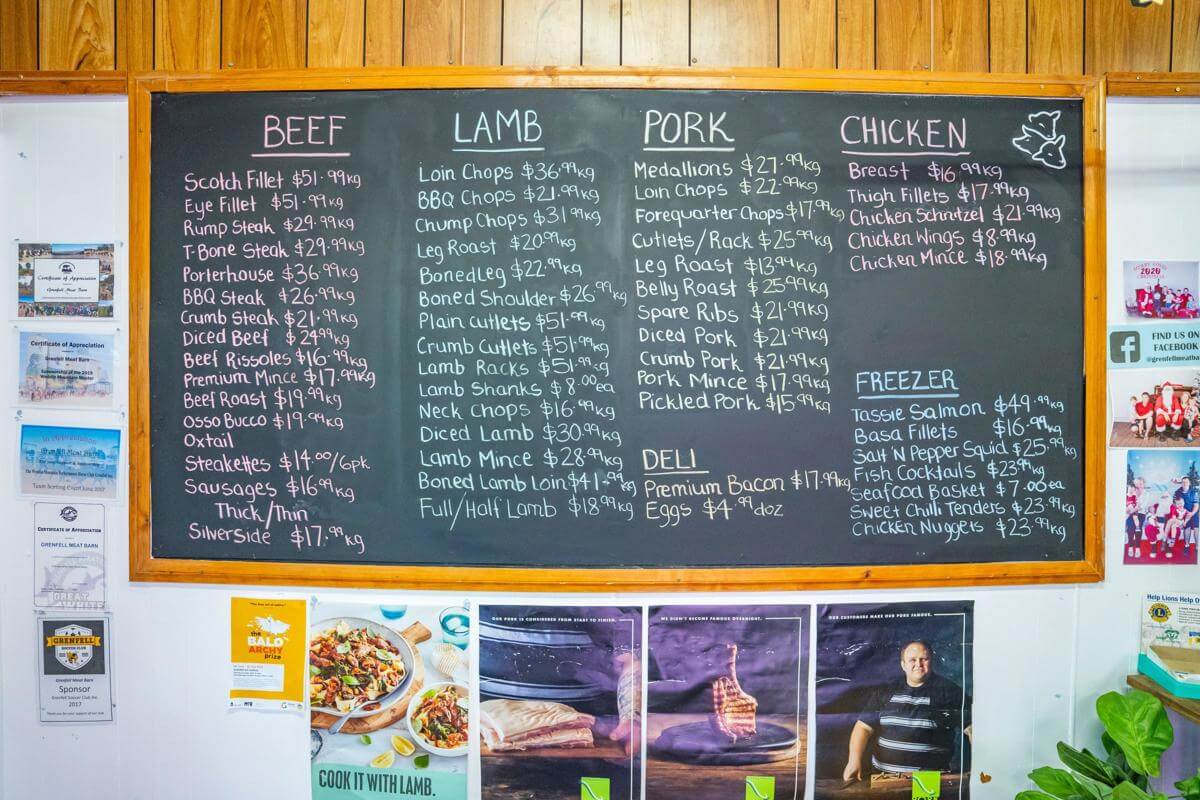 BEEF
Scotch Fillet $51.99kg
Eye Fillet $51.99kg
Rump Steak $29.99kg
T-Bone Steak $29.99kg
Porterhouse $36.99kg
BBQ Steak $26.99kg
Crumb Steak $21.99kg
Diced Beef $24.99kg
Beef Rissoles $16.99kg
Premium Mince $17.99kg
Beef Roast $19.99kg
Osso Bucco $19.99kg
Oxtail
Steakettes $14.00/6pk
Sausages $16.99kg
Thick/Thin
Silverside $17.99kg
LAMB
Loin Chops $36.99kg
BBQ Chops $21.99kg
Chump Chops $31.99kg
Leg Roast $20.99kg
Boned Leg $22.99kg
Boned Shoulder $26.99kg
Plain Cutlets $51.99kg
Crumb Cutlets $51.99kg
Lamb Racks $51.99kg
Lamb Shanks $8.00ea
Neck Chops $16.99kg
Diced Lamb $30.99kg
Lamb Mince $28.99kg
Boned Lamb Loin $41.99kg
Full/Half Lamb $18.99kg
PORK
Medallions $27.99kg
Loin Chops $22.99kg
Forequarter Chops $17.99kg
Cutlets/Rack $25.99kg
Leg Roast $13.99kg
Belly Roast $25.99kg
Spare Ribs $21.99kg
Diced Pork $21.99kg
Crumb Pork $21.99kg
Pork Mince $17.99kg
Pickled Pork $15.99kg
DELI
Premium Bacon $17.99kg
Eggs $4.99doz
CHICKEN
Breast $16.99kg
Thigh Fillets $17.99kg
Chicken Schnitzel $21.99kg
Chicken Wings $8.99kg
Chicken Mince $18.99kg
FREEZER
Tassie Salmon $49.99kg
Basa Fillets $16.99kg
Salt 'N Pepper Squid $25.99kg
Fish Cocktails $23.99kg
Seafood Basket $7.00ea
Sweet Chilli Tenders $23.99kg
Chicken Nuggets $23.99kg
Certificate of Appreciation
Grenfell Meat Barn
Certificate of Appreciation
Grenfell Meat Barn
In Appreciation
Grenfell Meat Barn
CERTIFICATE OF APPRECIATION
GRENFELL MEAT BARN
GREAT
WHITE
GRENFELL
SOCCER CLUB
Grenfell Meat Barn
Sponsor
Grenfell Soccer Club Inc.
2017
Thank you for your support of our club
the
BALD
ARCHY
prize
COOK IT WITH LAMB.
OUR PORK IS CONSIDERED FROM START TO FINISH.
WE DIDN'T BECOME FAMOUS OVERNIGHT.
OUR CUSTOMERS MAKE OUR PORK FAMOUS.
2020
f
FIND US ON
FACEBOOK
@grenfellmeatba
Help Lions Help O